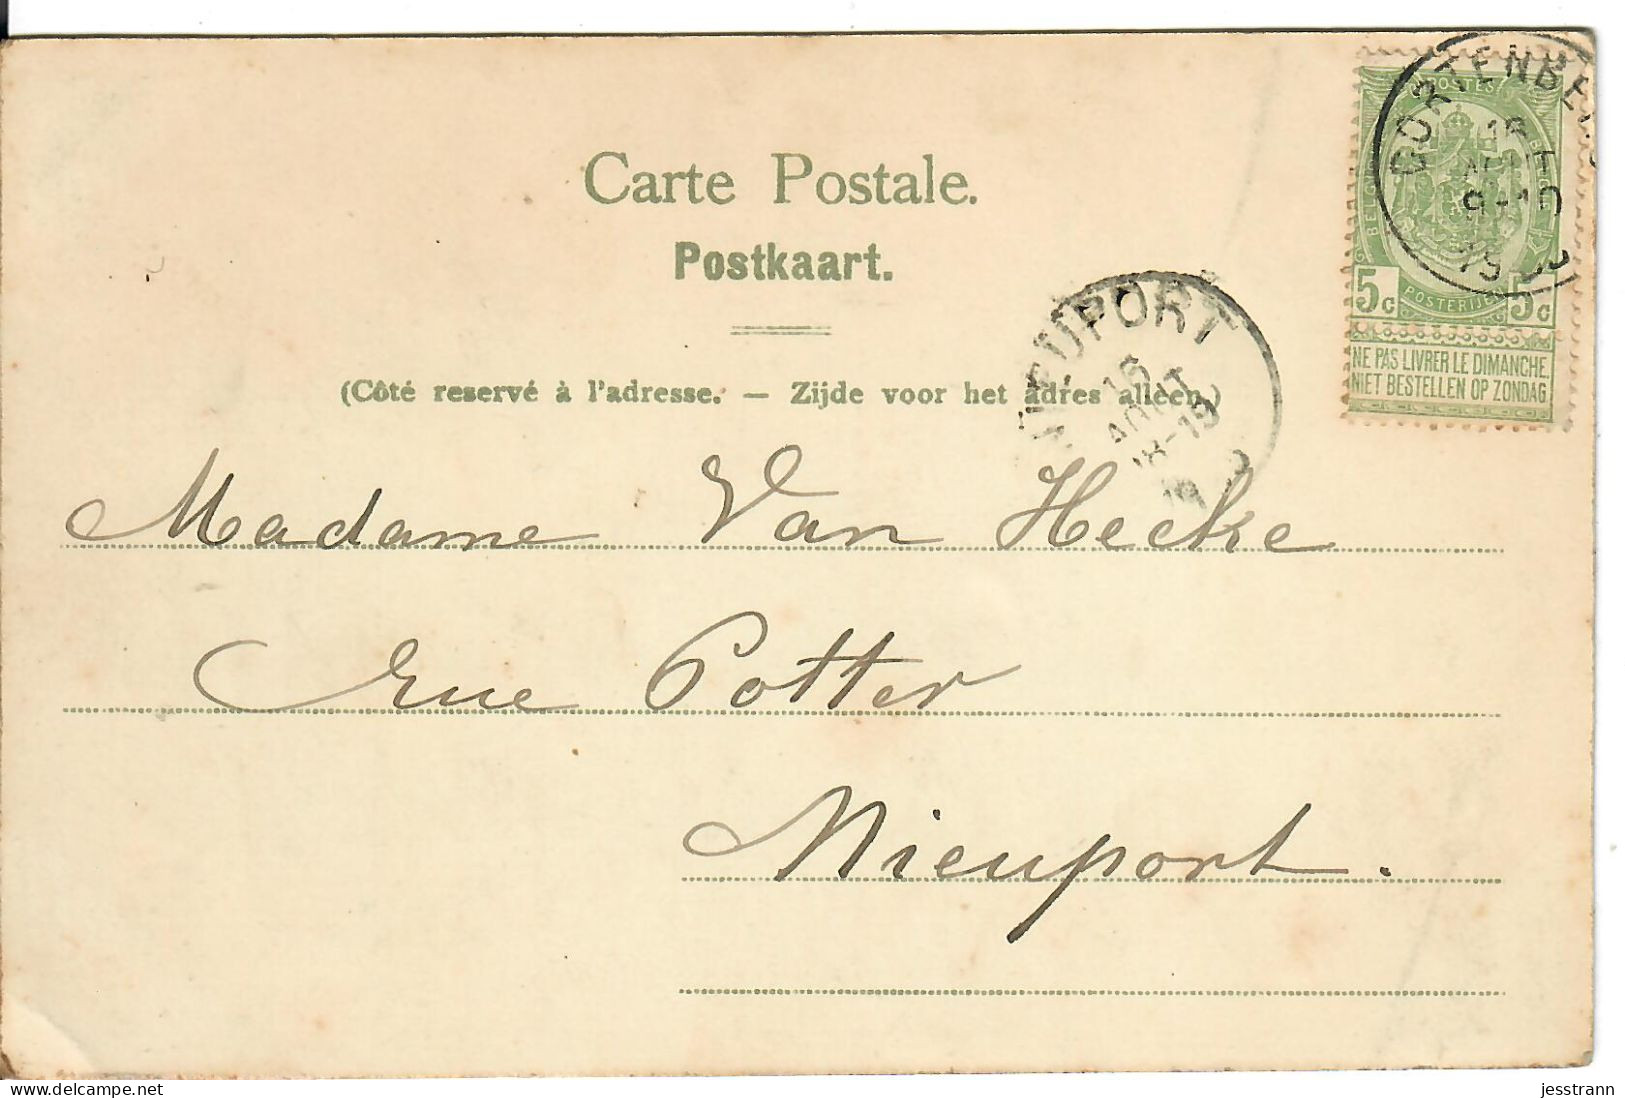 Carte Postale.
Postkaart.
(Côté reservé à l'adresse. — Zijde voor het adres alleen.)
Madame Van Hecke
Rue Potter
Nieuport.
NIEUPORT
16
AOUT
18-19
CORTENBE
16
9-10
19
POSTES
POSTERIJEN
5c 5c
NE PAS LIVRER LE DIMANCHE
NIET BESTELLEN OP ZONDAG
www.delcampe.net
jesstrann